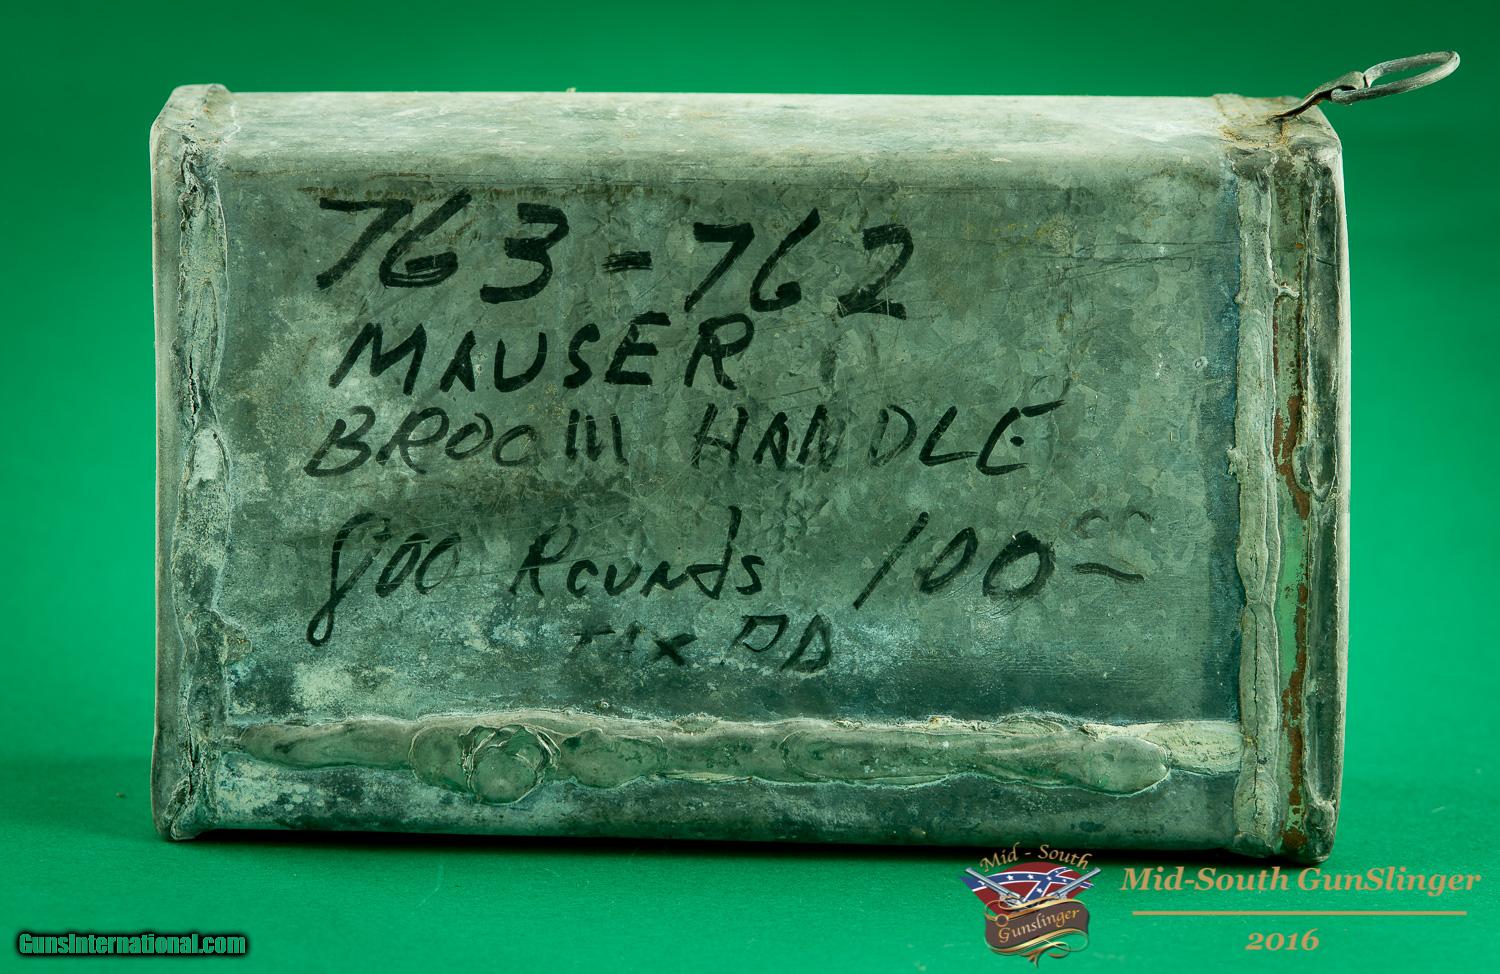 763-762
MAUSER
BROOM HANDLE
800 Rounds 100⁰⁰
TAX PD
Mid-South
Gunslinger
Mid-South GunSlinger
2016
GunsInternational.com